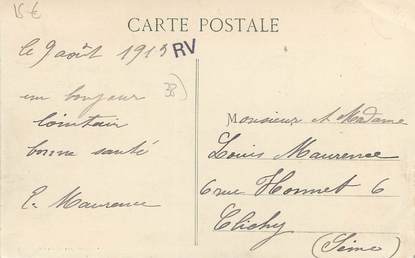 15€
CARTE POSTALE
le 9 août 1913
RV
un bonjour
38)
lointain
bonne santé
E. Maurence
Monsieur et Madame
Louis Maurence
6 rue Honnet 6
Clichy
(Seine)